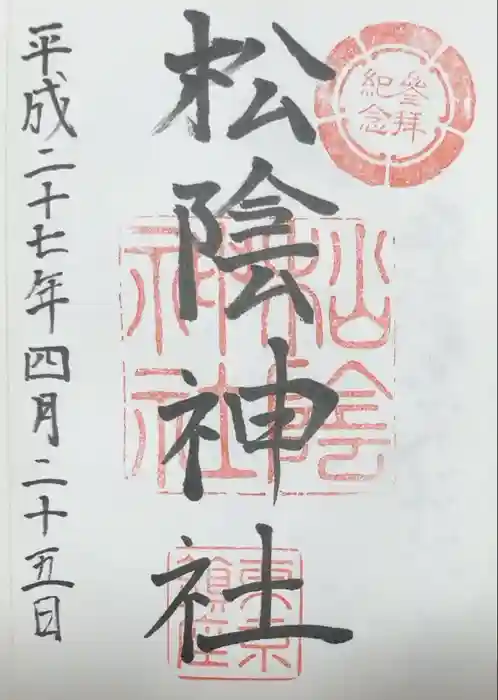 参拜
紀念
松陰神社
松陰
神社
東京
鎮座
平成二十七年四月二十五日